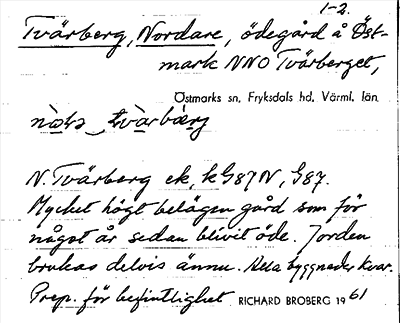 1-2.
Tvärberg, Nordare, ödegård å Öst-
mark NNO Tvärberget,
Östmarks sn, Fryksdals hd, Värml. län.
N. Tvärberg ek, kG87N, G87.
Mycket högt belägen gård som för
något år sedan blivit öde. Jorden
brukas delvis ännu. Alla byggnader kvar.
Prep. för befintlighet RICHARD BROBERG 1961